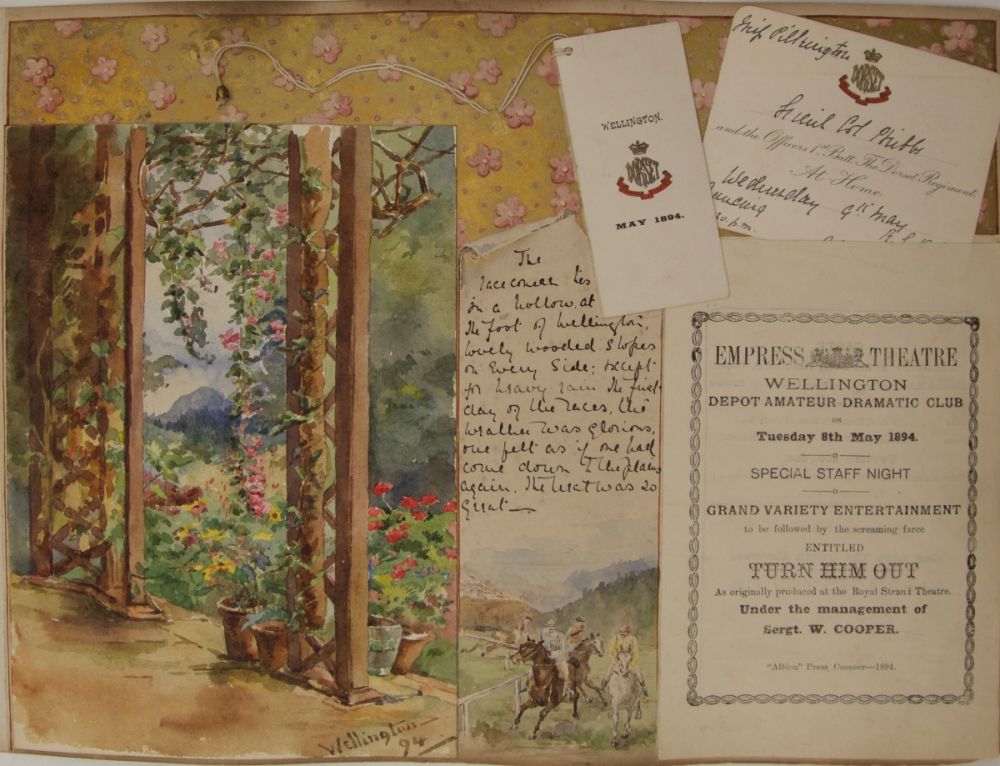 WELLINGTON.
DORSET
MAY 1894.
Miss Pilkington
DORSET
Lieut Col
and the Officers 1st Batt. The Dorset Regiment.
At Home
Wednesday 9th May
Dancing
p.m.
The
racecourse lies
in a hollow, at
the foot of Wellington,
lovely wooded slopes
on every side; except
for heavy rain the first
day of the races, the
weather was glorious,
one felt as if one had
come down to the plains
again, the heat was so
great—
Wellington
94
EMPRESS THEATRE
WELLINGTON
DEPOT AMATEUR DRAMATIC CLUB
ON
Tuesday 8th May 1894.
SPECIAL STAFF NIGHT
GRAND VARIETY ENTERTAINMENT
to be followed by the screaming farce
ENTITLED
TURN HIM OUT
As originally produced at the Royal Strand Theatre.
Under the management of
Sergt. W. COOPER.
"Albion" Press, Coonoor—1894.